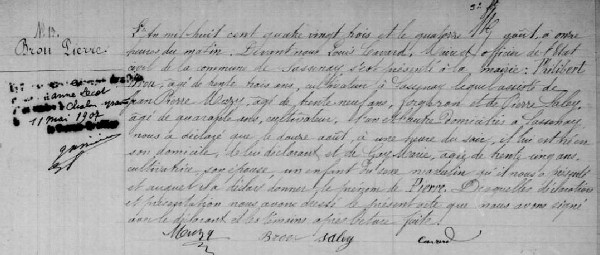 N° 13.
Brou Pierre
11 mai 1907
L'an mil huit cent quatre vingt trois et le quatorze août, à onze
heures du matin. Devant nous Louis Cavard, Maire et officier de l'Etat
civil de la commune de Sassenay s'est présenté à la mairie: Philibert
Brou, âgé de trente trois ans, cultivateur à Sassenay lequel assisté de
Jean Pierre Mozy, âgé de trente neuf ans, forgeron et de Pierre
âgé de quarante ans, cultivateur, l'un et l'autre domiciliés à Sassenay
nous a déclaré que le douze août, à une heure du soir, il lui est né en
son domicile, de lui déclarant et de Marie, âgée de trente cinq ans,
cultivatrice, son épouse, un enfant du sexe masculin qu'il nous a présenté
et auquel il a désiré donner le prénom de Pierre. Desquelles déclaration
et présentation nous avons dressé le présent acte que nous avons signé
avec le déclarant et les témoins après lecture faite.
Mozy Brou Cavard